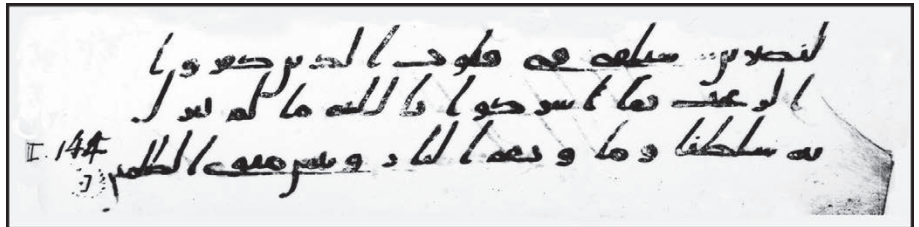 لنصرين سنلقى فى قلوب الذين كفروا
الرعب بما اشركوا بالله ما لم ينزل
به سلطنا وماويهم النار وبئس مثوى الظلمين
I. 144